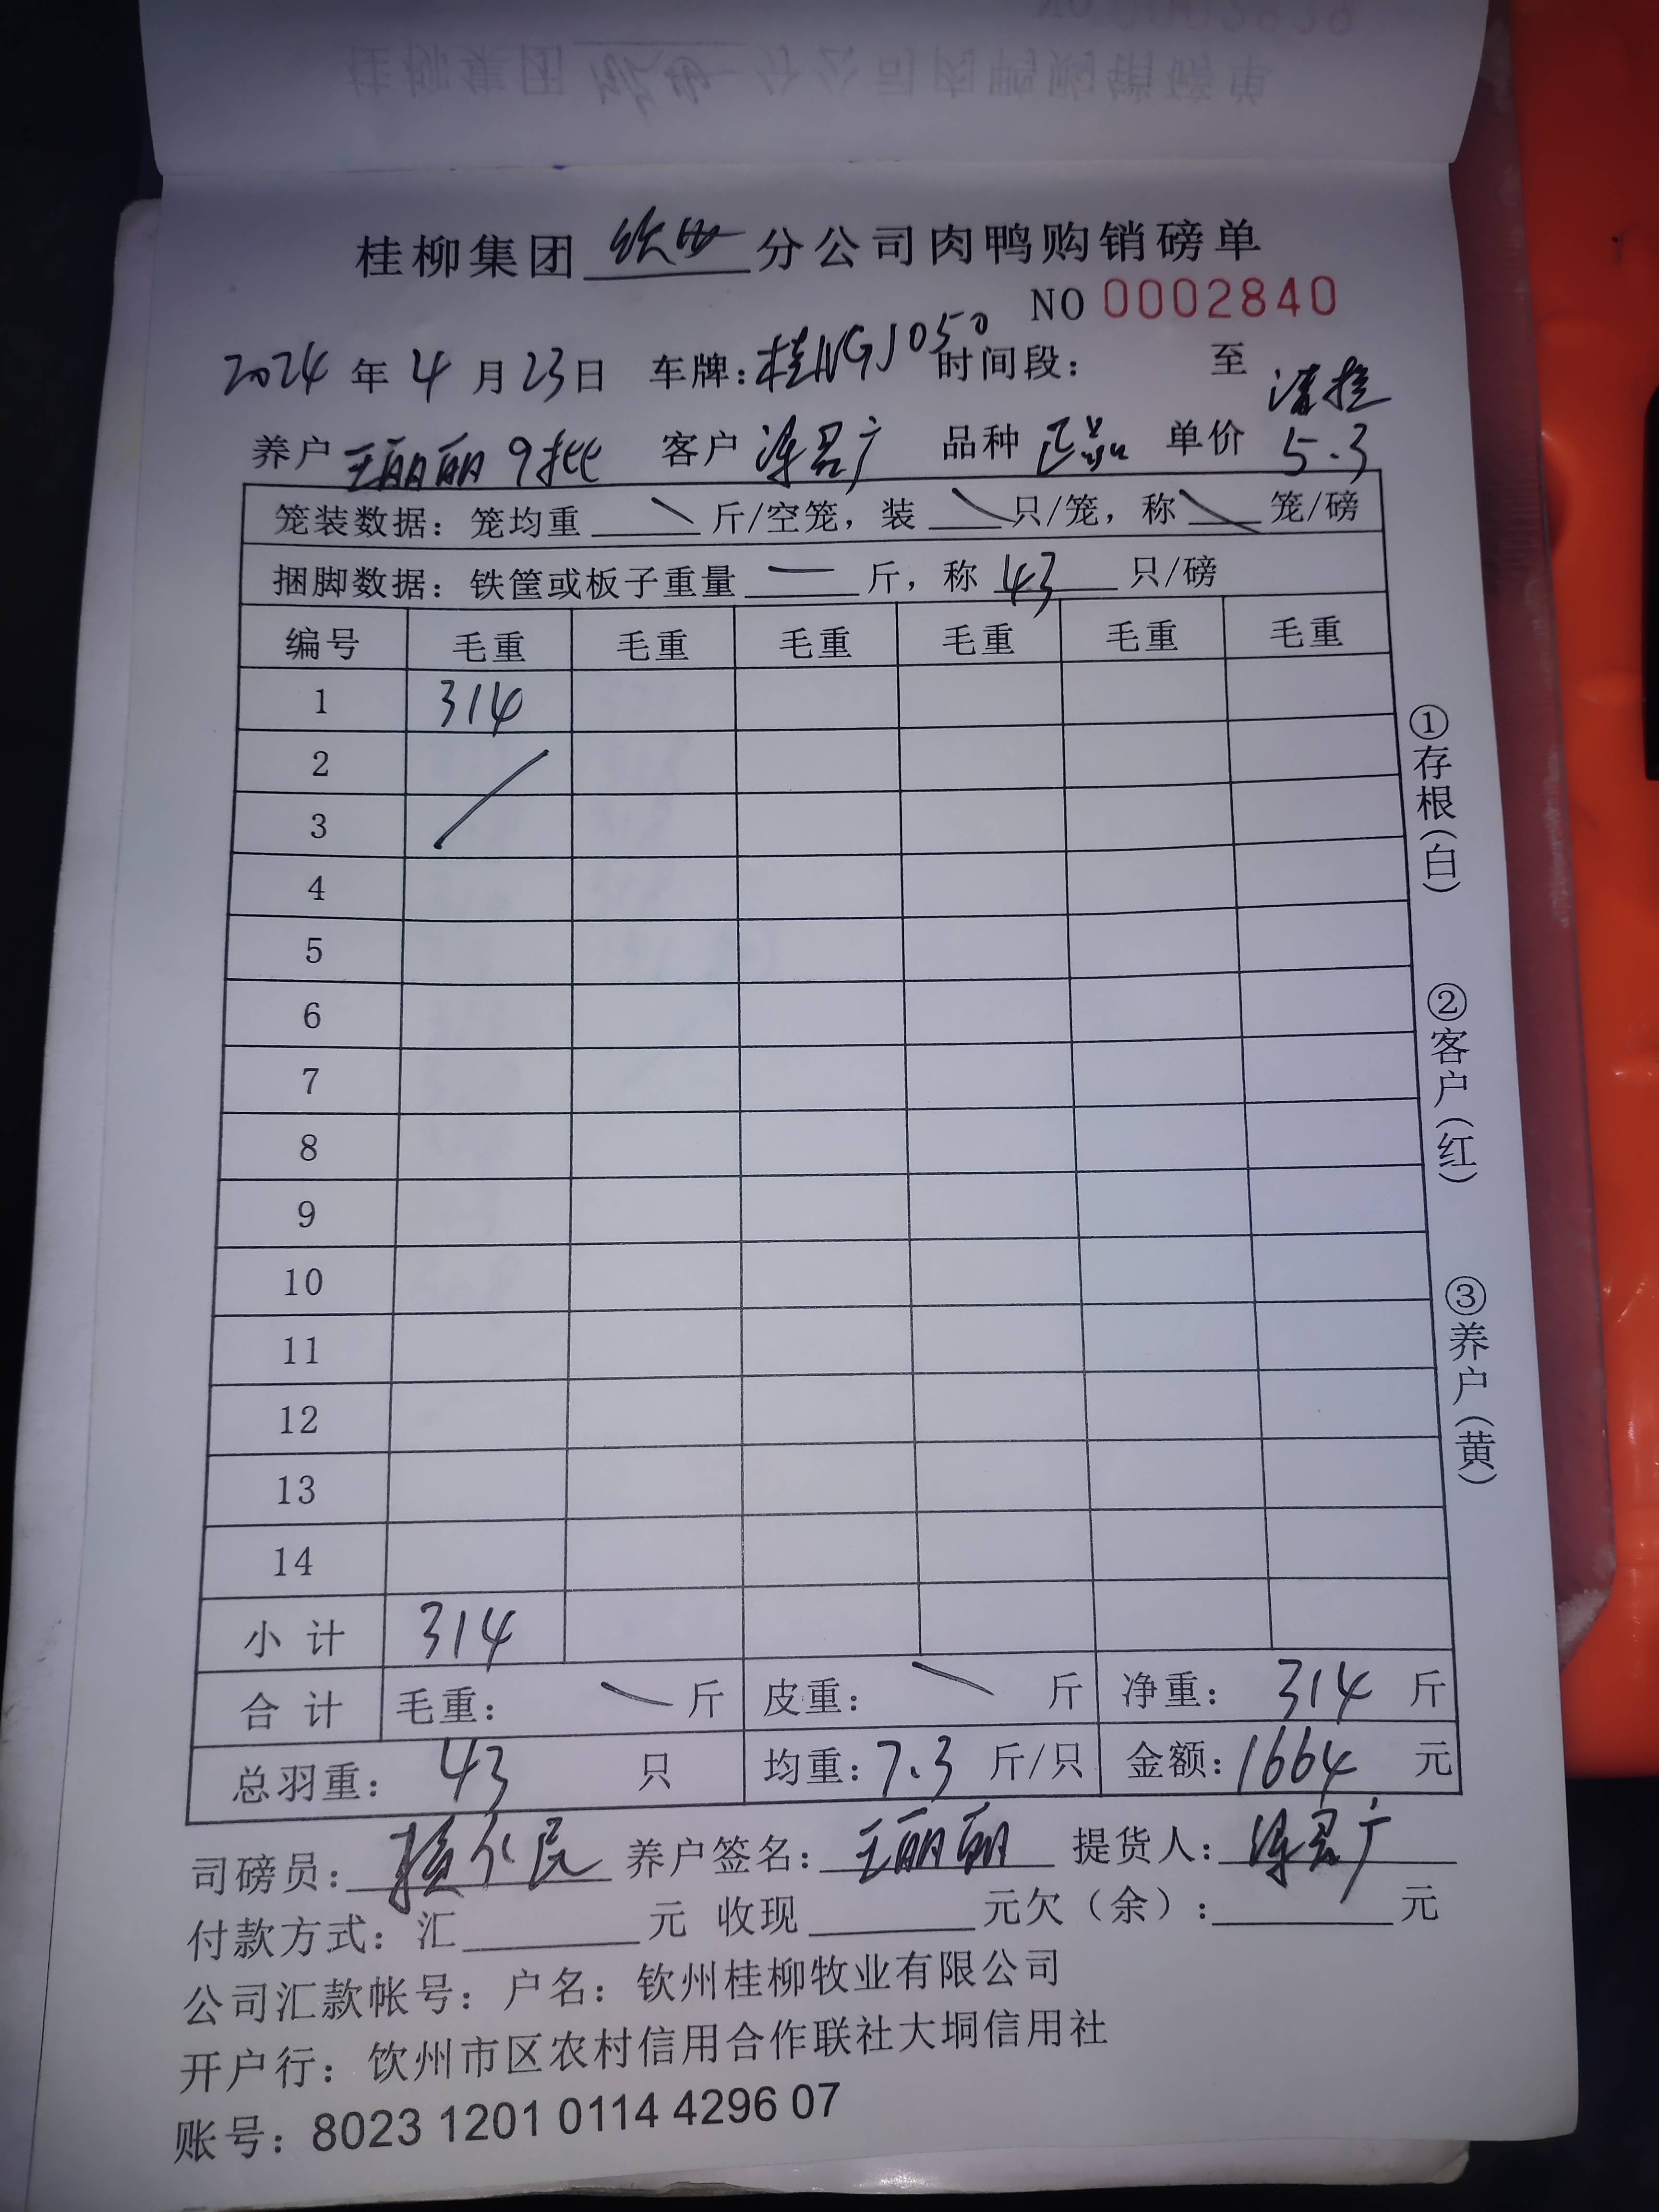 桂柳集团 钦州 分公司肉鸭购销磅单
NO 0002840
2024 年 4 月 23 日 车牌：桂NGJ050 时间段： 至
清栏
养户 王丽丽 9批 客户 广 品种 正品 单价 5.3
笼装数据：笼均重 斤/空笼，装 只/笼，称 笼/磅
捆脚数据：铁筐或板子重量 一 斤，称 43 只/磅
编号 毛重 毛重 毛重 毛重 毛重 毛重
1 314
2
3
4
5
6
7
8
9
10
11
12
13
14
小计 314
合计 毛重： 斤 皮重： 斤 净重：314 斤
总羽重：43 只 均重：7.3 斤/只 金额：1664 元
司磅员： 养户签名：王丽丽 提货人： 广
付款方式：汇 元 收现 元欠（余）： 元
公司汇款帐号：户名：钦州桂柳牧业有限公司
开户行：钦州市区农村信用合作联社大垌信用社
账号：8023 1201 0114 4296 07
①存根（白）
②客户（红）
③养户（黄）